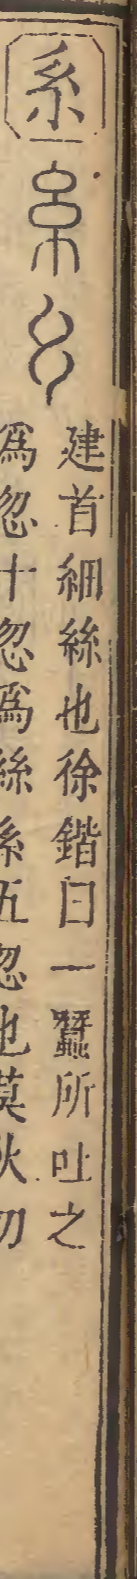 糸
建首細絲也徐鍇曰一蠶所吐之
爲忽十忽爲絲糸五忽也莫狄切